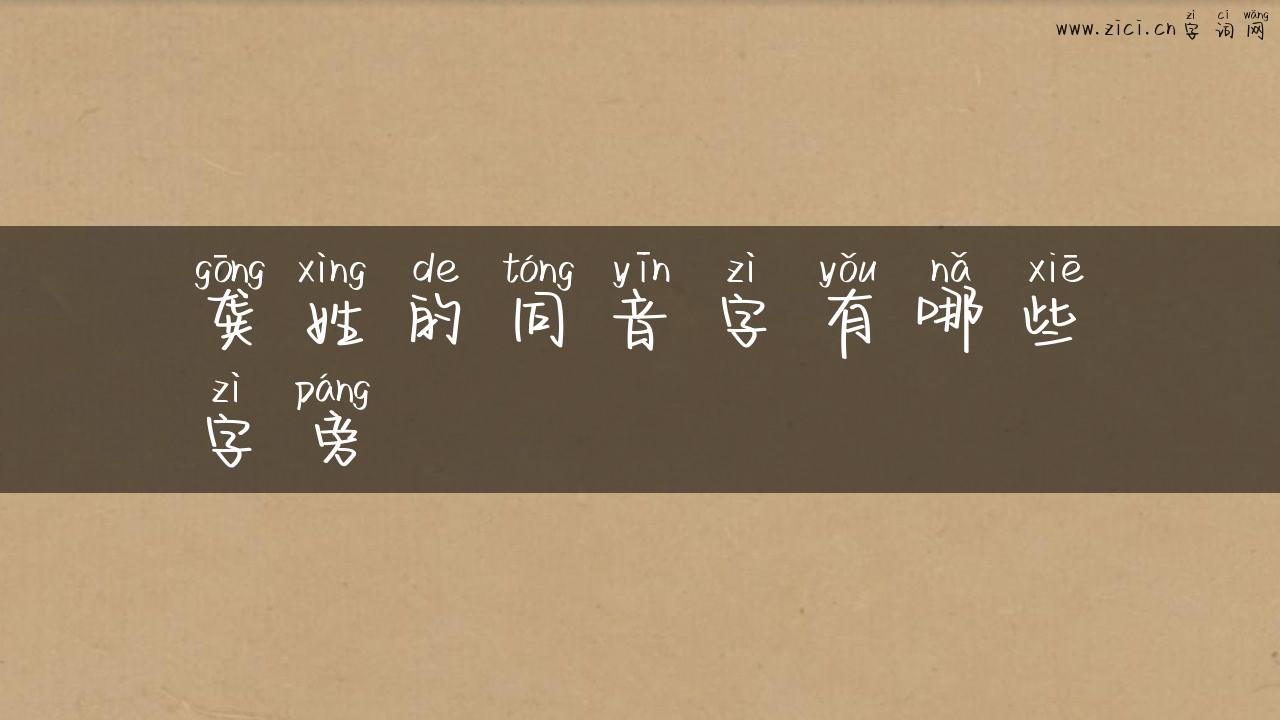 zì cí wǎng
www.zici.cn 字词网
gōng xìng de tóng yīn zì yǒu nǎ xiē
龚姓的同音字有哪些
zì páng
字旁